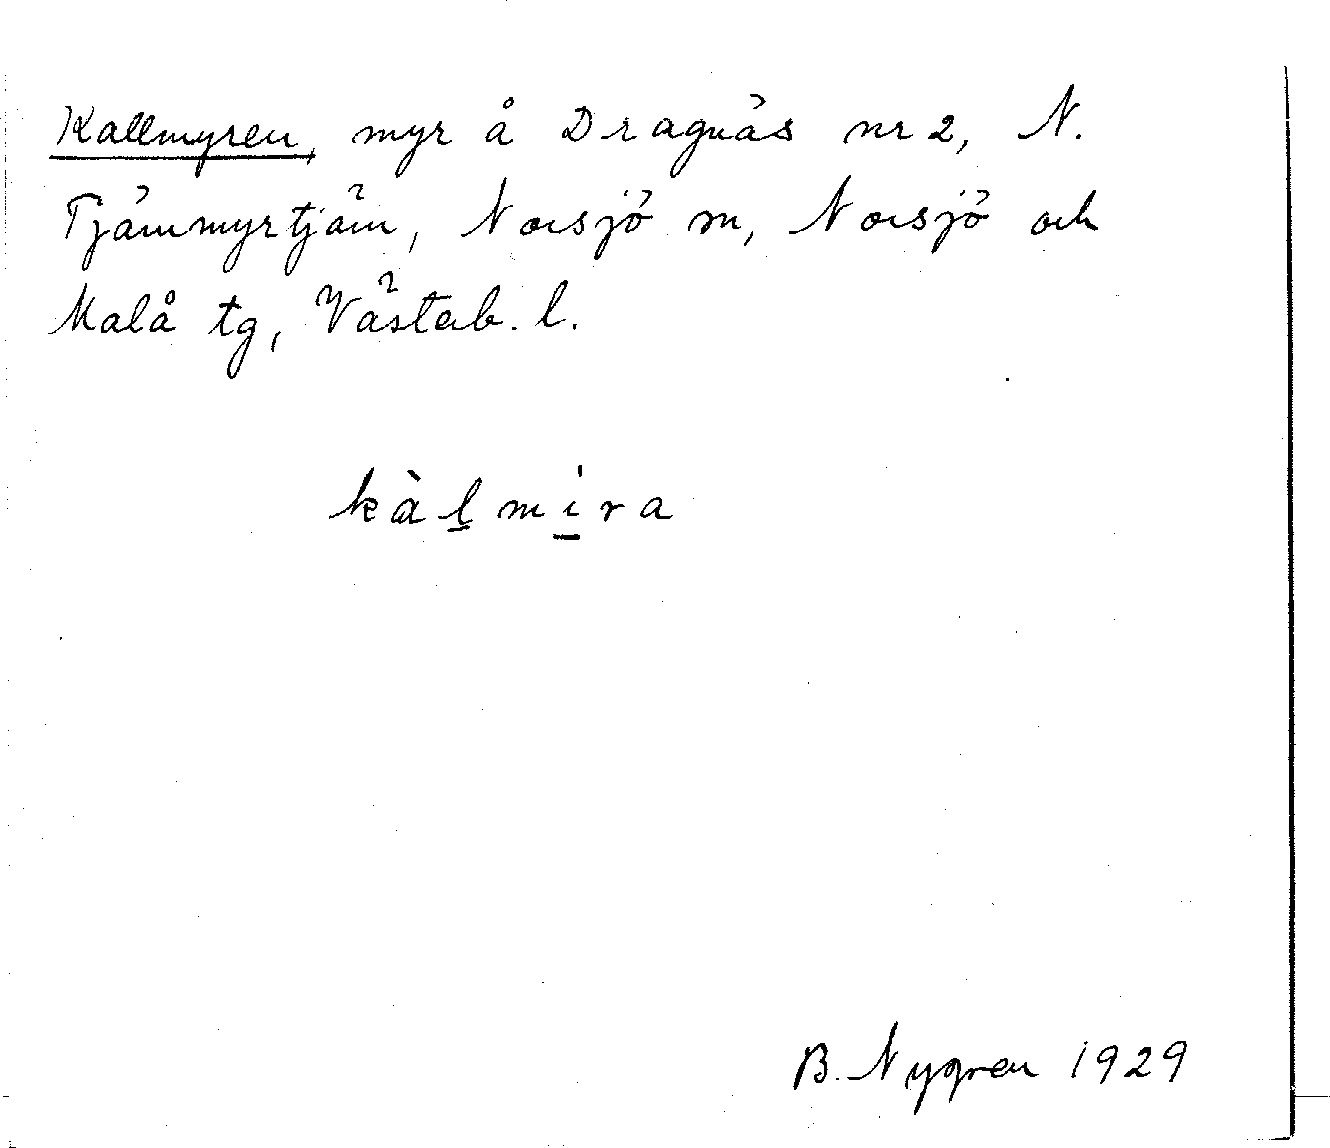 Kallmyren, myr å Dragnäs nr 2, N.
Tjämmyrtjäm, Norsjö sn, Norsjö och
Malå tg, Västerb. l.
kàl̠mi̠ra
B. Nygren 1929